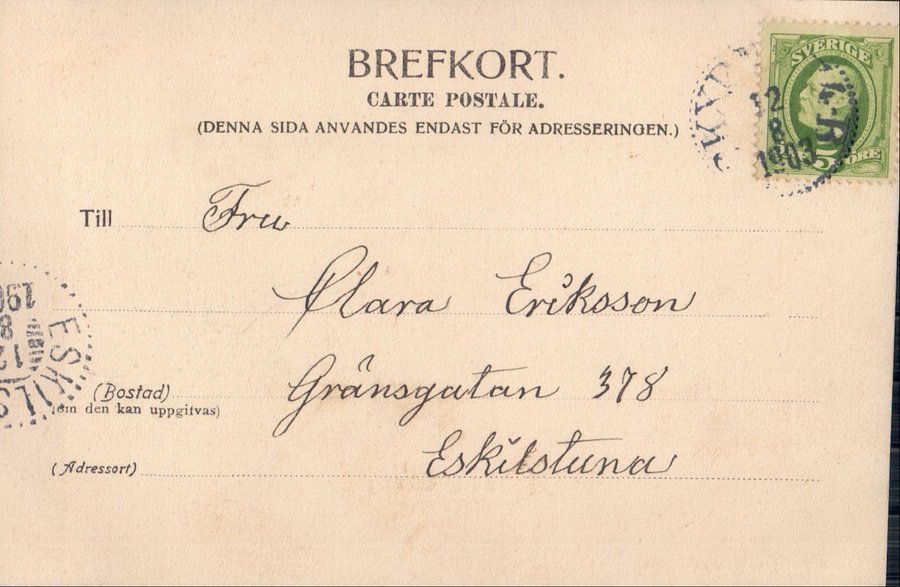 BREFKORT.
CARTE POSTALE.
(DENNA SIDA ANVANDES ENDAST FÖR ADRESSERINGEN.)
SVERIGE
5 ÖRE
12
8
1903
Till Fru
Clara Eriksson
(Bostad) Gränsgatan 378
(om den kan uppgifvas)
(Adressort) Eskilstuna
ESKILS
12
8
190